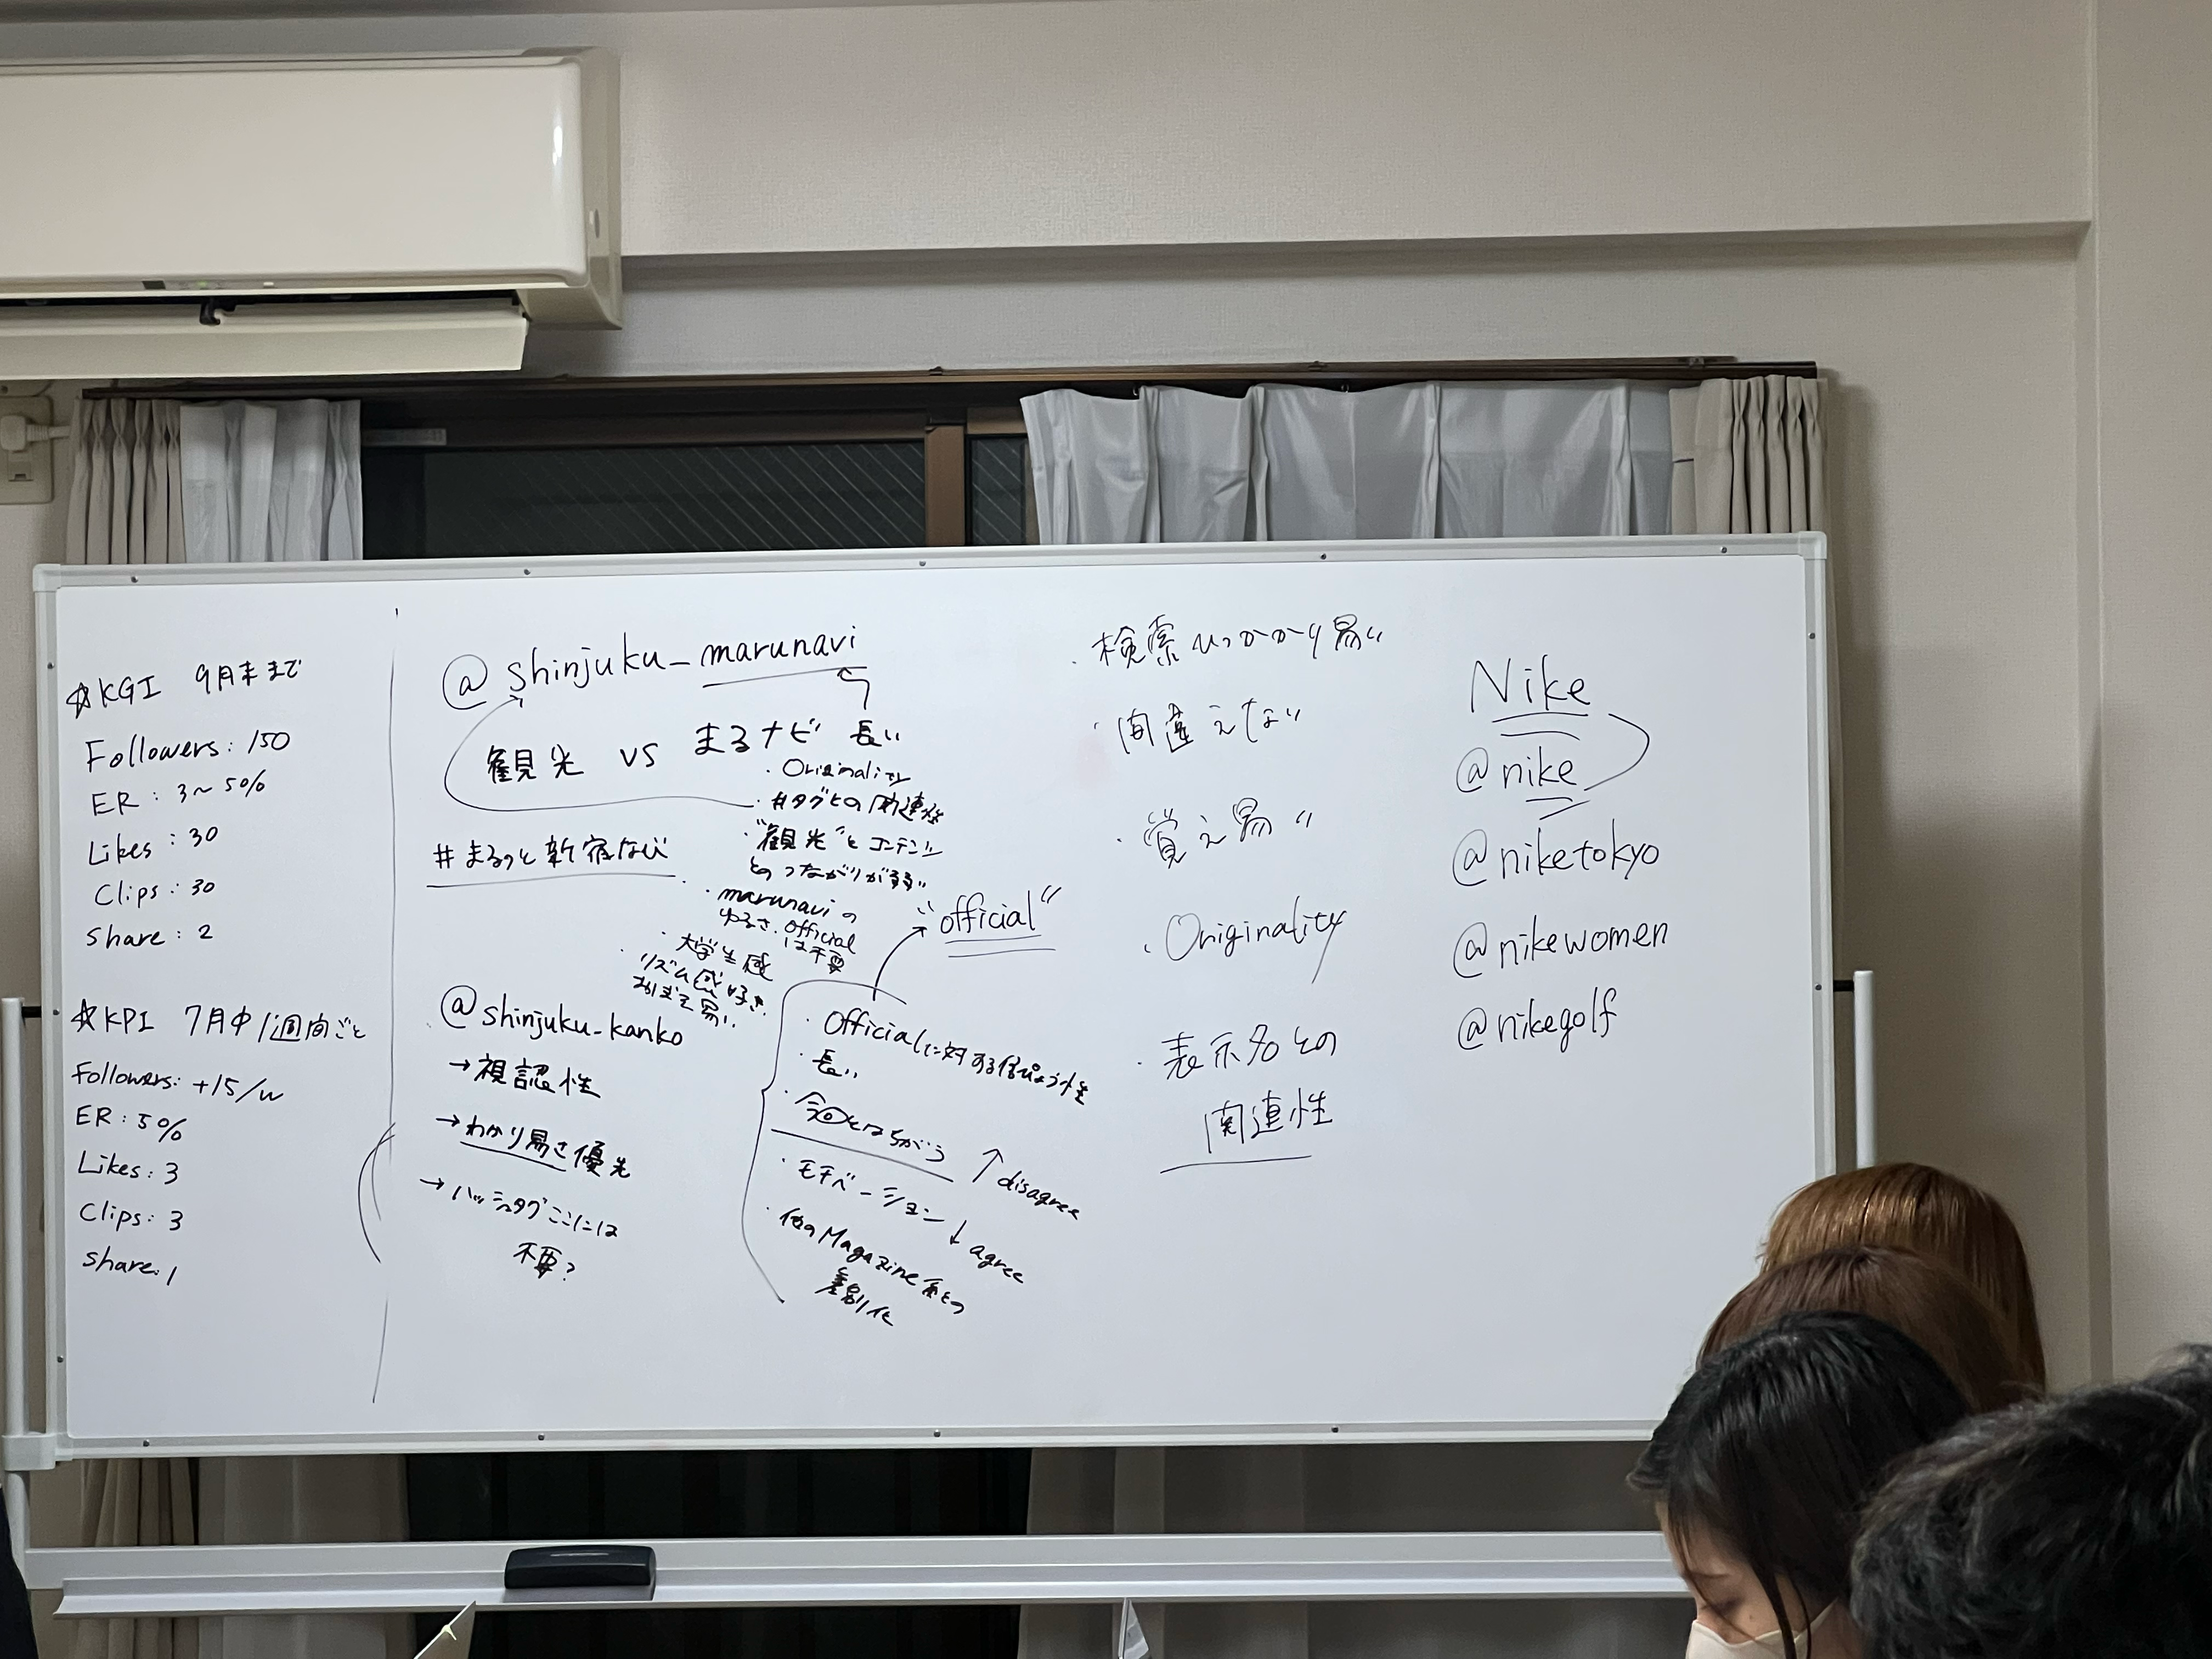 ☆KGI 9月末まで
Followers: 150
ER: 3〜5%
Likes: 30
Clips: 30
share: 2
☆KPI 7月中 1週間ごと
Followers: +15/w
ER: 5%
Likes: 3
Clips: 3
share: 1
@shinjuku_marunavi
観光 vs まるナビ 長い
・Originality
・#タグとの関連性
・"観光"とコンテンツ
とのつながりが弱い
・marunaviの
ゆるさ. official
は不要
・大学生感
・リズム感好き.
おぼえ易い.
#まるっと新宿なび
@shinjuku_kanko
→視認性
→わかり易さ優先
→ハッシュタグここには
不要?
"official"
・Officialに対する信ぴょう性
・長い
・今回とはちがう
↑disagree
・モチベーション ↓agree
・他のMagazine系との
差別化
・検索ひっかかり易い
・間違えない
・覚え易い
・Originality
・表示名との
関連性
Nike
@nike
@niketokyo
@nikewomen
@nikegolf